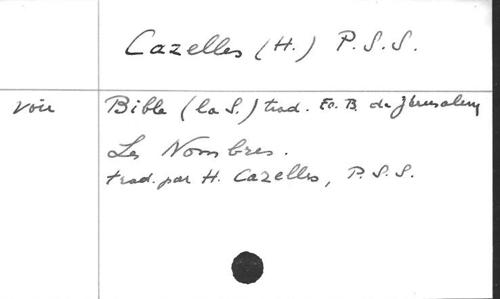 Cazelles (H.) P.S.S.
voir Bible (la S.) trad. Ec. B. de Jérusalem
Les Nombres.
trad. par H. Cazelles, P.S.S.